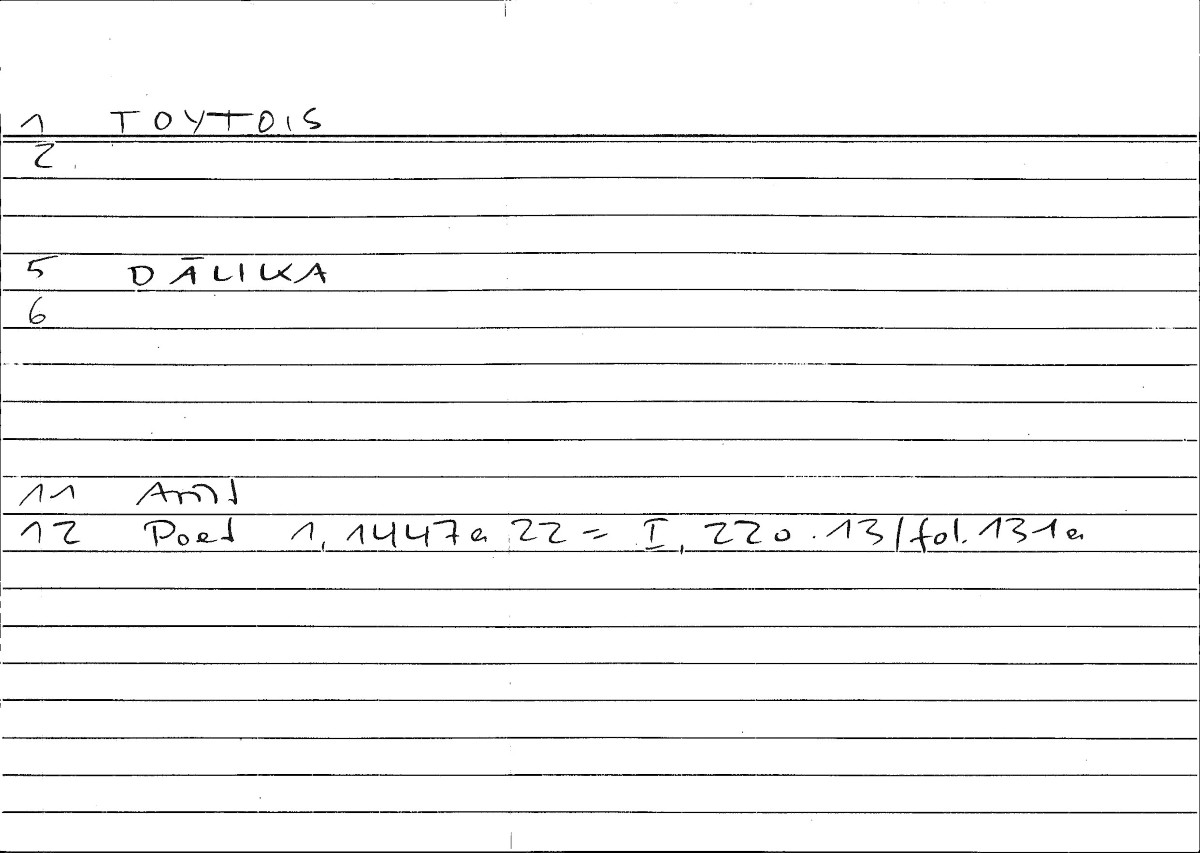 1 TOYTOIS
2
5 DĀLIKA
6
11 Arist
12 Poet 1, 1447a 22 = I, 220.13/fol. 131a